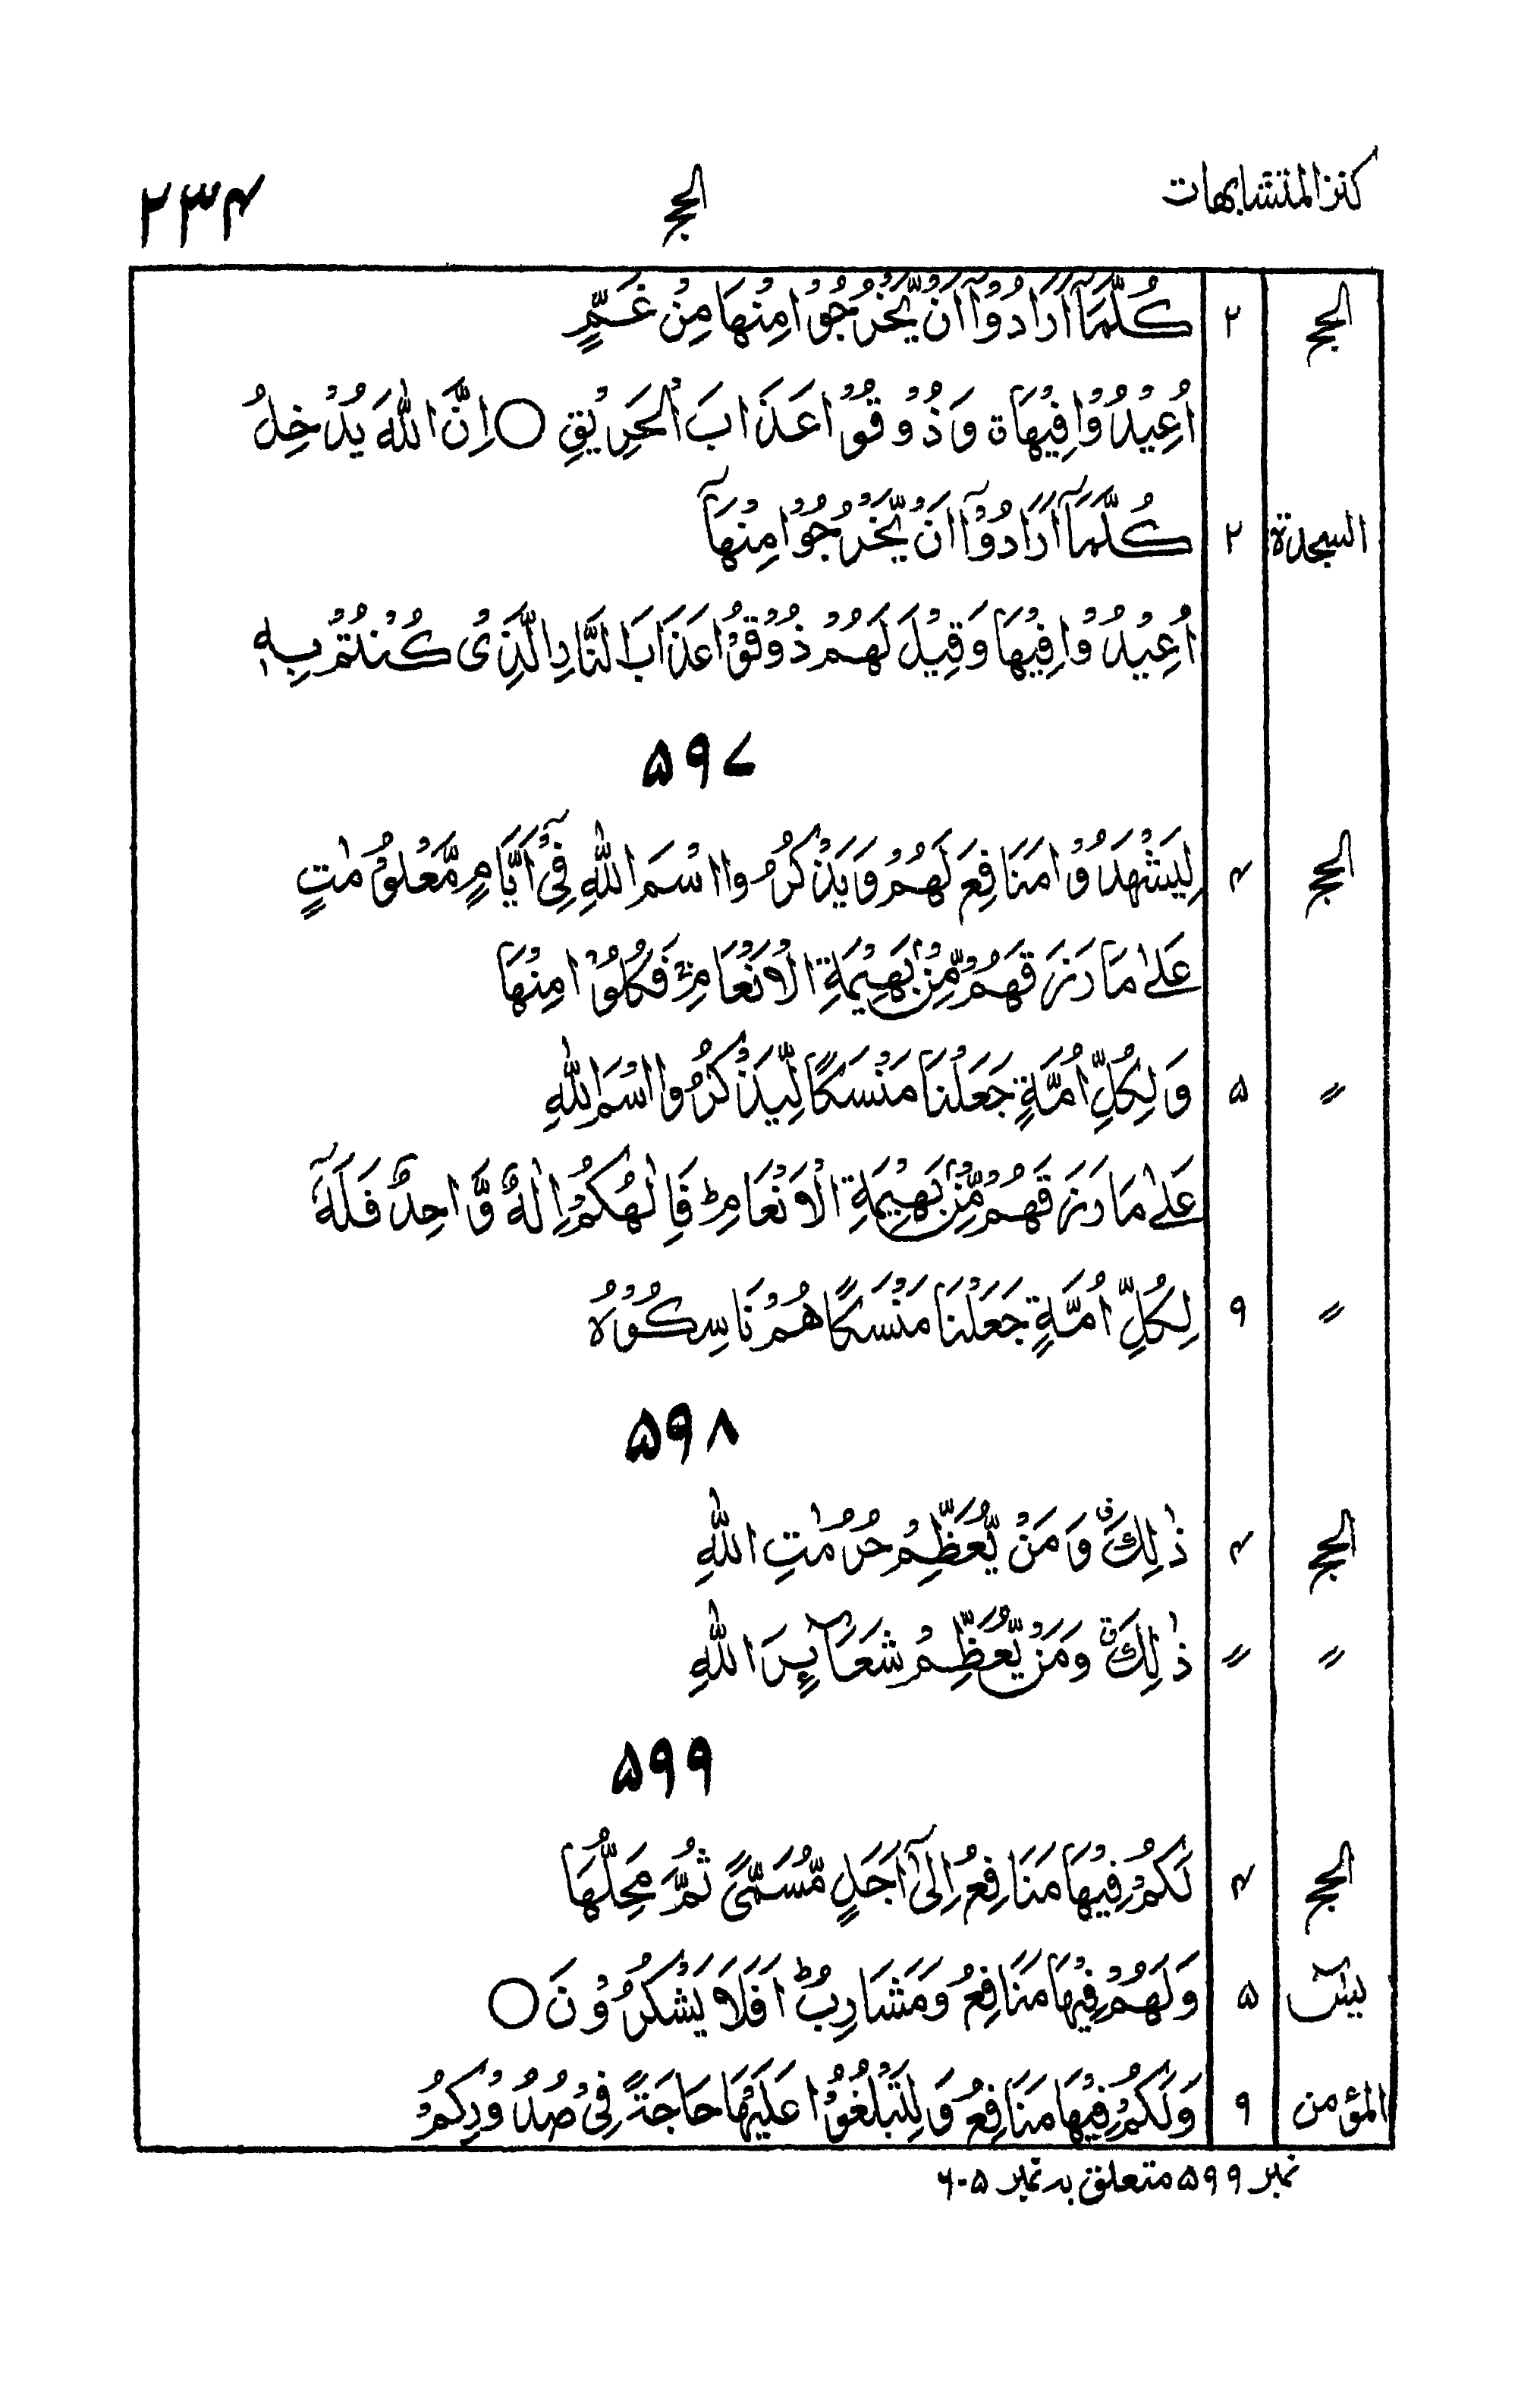 كنز المتشابهات الحج ۲۳۴
الحج ۲ كُلَّمَآ اَرَادُوْٓا اَنْ يَّخْرُجُوْا مِنْهَا مِنْ غَمٍّ
اُعِيْدُوْا فِيْهَا ۃ وَذُوْقُوْا عَذَابَ الْحَرِيْقِ ○ اِنَّ اللّٰهَ يُدْخِلُ
السجدة ۲ كُلَّمَآ اَرَادُوْٓا اَنْ يَّخْرُجُوْا مِنْهَآ
اُعِيْدُوْا فِيْهَا وَقِيْلَ لَهُمْ ذُوْقُوْا عَذَابَ النَّارِ الَّذِىْ كُنْتُمْ بِهٖ
۵۹۷
الحج ۴ لِيَشْهَدُوْا مَنَافِعَ لَهُمْ وَيَذْكُرُوا اسْمَ اللّٰهِ فِىْٓ اَيَّامٍ مَّعْلُوْمٰتٍ
عَلٰى مَا رَزَقَهُمْ مِّنْۢ بَهِيْمَةِ الْاَنْعَامِ ۚ فَكُلُوْا مِنْهَا
〃 ۵ وَلِكُلِّ اُمَّةٍ جَعَلْنَا مَنْسَكًا لِّيَذْكُرُوا اسْمَ اللّٰهِ
عَلٰى مَا رَزَقَهُمْ مِّنْۢ بَهِيْمَةِ الْاَنْعَامِ ؕ فَاِلٰهُكُمْ اِلٰهٌ وَّاحِدٌ فَلَهٗٓ
〃 ۹ لِكُلِّ اُمَّةٍ جَعَلْنَا مَنْسَكًا هُمْ نَاسِكُوْهُ
۵۹۸
الحج ۴ ذٰلِكَ ۛ وَمَنْ يُّعَظِّمْ حُرُمٰتِ اللّٰهِ
〃 〃 ذٰلِكَ ۛ وَمَنْ يُّعَظِّمْ شَعَآئِرَ اللّٰهِ
۵۹۹
الحج ۴ لَكُمْ فِيْهَا مَنَافِعُ اِلٰٓى اَجَلٍ مُّسَمًّى ثُمَّ مَحِلُّهَا
يٰسٓ ۵ وَلَهُمْ فِيْهَا مَنَافِعُ وَمَشَارِبُ ؕ اَفَلَا يَشْكُرُوْنَ ○
المؤمن ۹ وَلَكُمْ فِيْهَا مَنَافِعُ وَلِتَبْلُغُوْا عَلَيْهَا حَاجَةً فِىْ صُدُوْرِكُمْ
نمبر ۵۹۹ متعلق بہ نمبر ۶۰۵